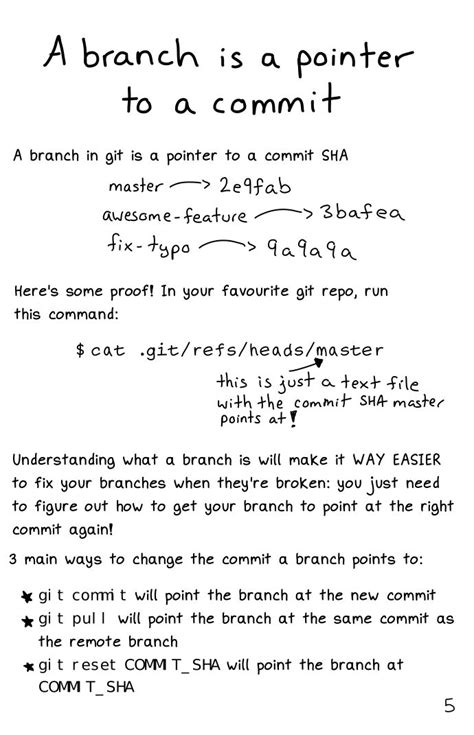 A branch is a pointer
to a commit
A branch in git is a pointer to a commit SHA
master → 2e9fab
awesome-feature → 3bafea
fix-typo → 9a9a9a
Here's some proof! In your favourite git repo, run
this command:
$ cat .git/refs/heads/master
this is just a text file
with the commit SHA master
points at!
Understanding what a branch is will make it WAY EASIER
to fix your branches when they're broken: you just need
to figure out how to get your branch to point at the right
commit again!
3 main ways to change the commit a branch points to:
★ git commit will point the branch at the new commit
★ git pull will point the branch at the same commit as
the remote branch
★ git reset COMMIT_SHA will point the branch at
COMMIT_SHA
5